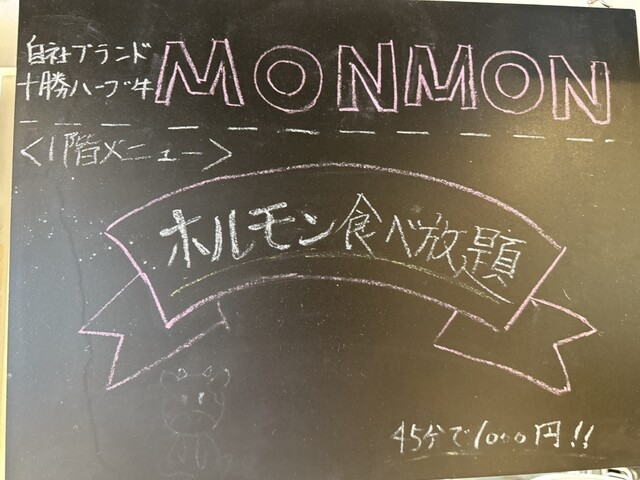 自社ブランド
十勝ハーブ牛
MONMON
<1階メニュー>
ホルモン食べ放題
45分で1000円!!